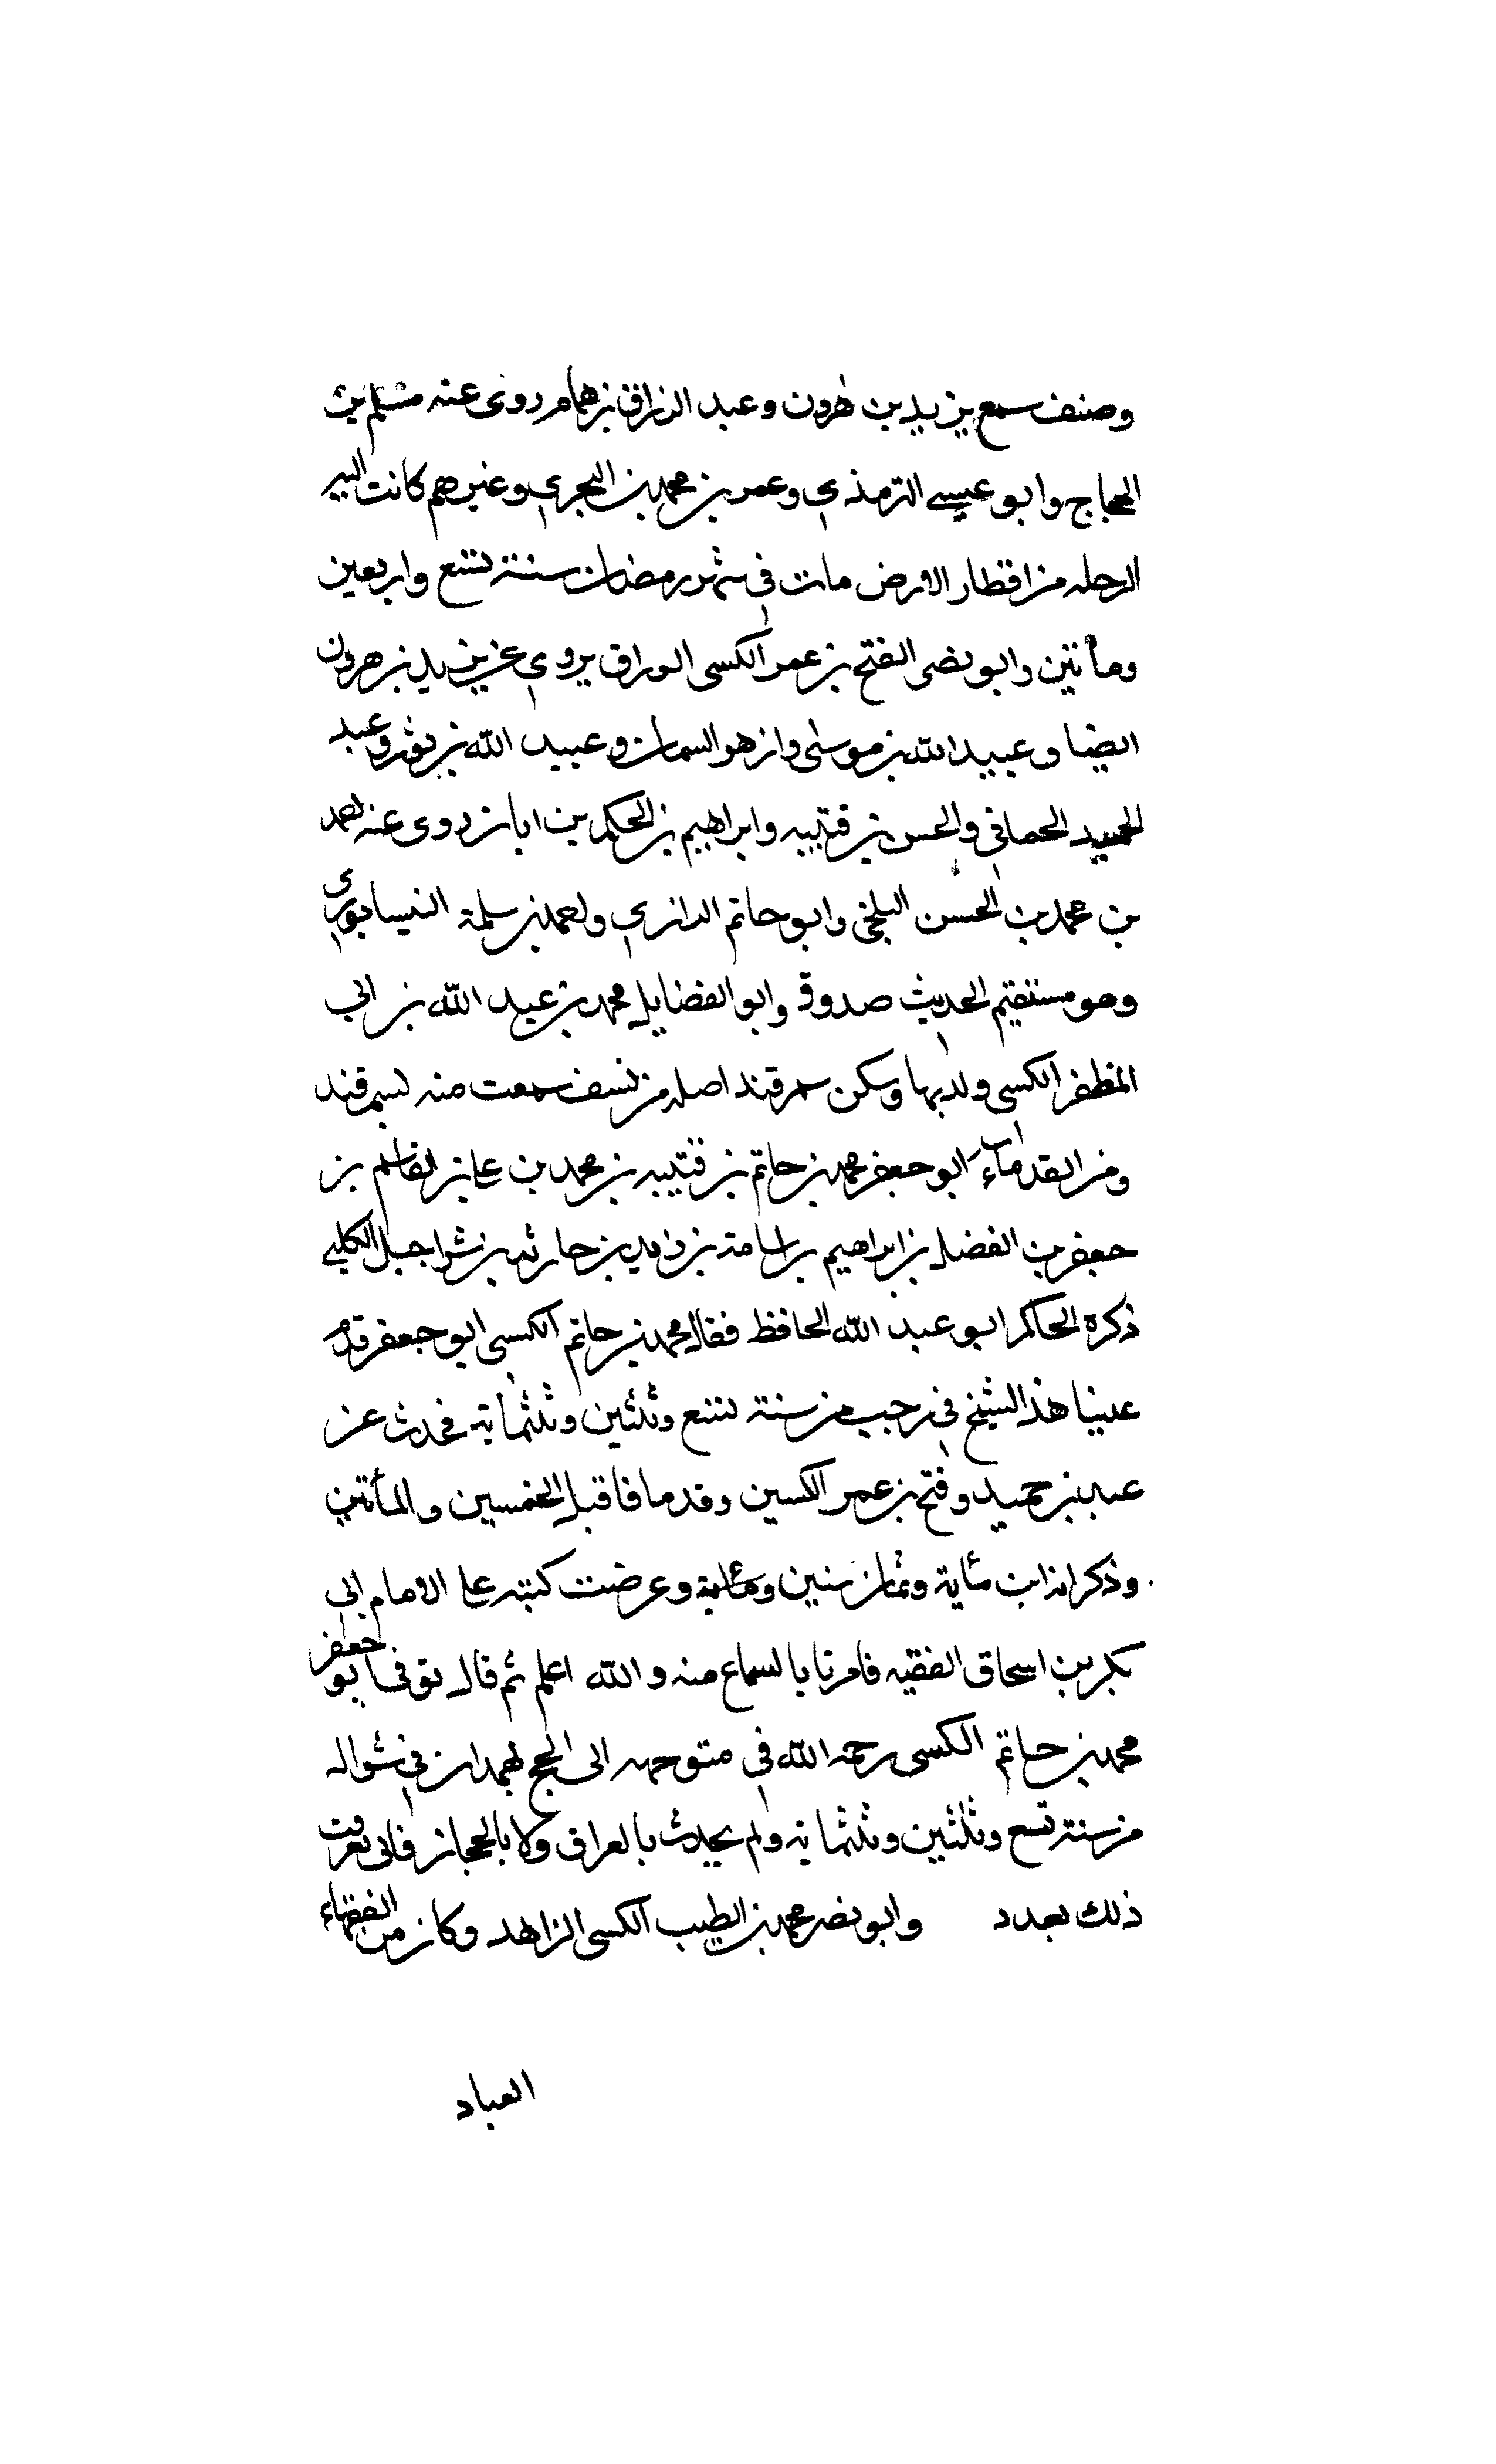 وصنف سمع يزيد بن هرون وعبد الرزاق بن همام روى عنه مسلم بن
الحجاج وابو عيسى الترمذي وعمر بن محمد بن البجري وغيرهم كانت اليه
الرحله من اقطار الارض مات في شهر رمضان سنة تسع واربعين
ومأتين وابو نصر الفتح بن عمر الكسى الوراق يروي عن يزيد بن هرون
ايضا وعبيد الله بن موسى وازهر السمان وعبيد الله بن ثور وعبد
الحميد الحماني والحسن بن قتيبه وابراهيم بن الحكم بن ابان روى عنه احمد
بن محمد بن الحسن البلخى وابو حاتم الرازي واحمد بن سلمة النيسابورى
وهو مستقيم الحديث صدوق وابو الفضايل محمد بن عبد الله بن ابي
المظفر الكسى ولد بها وسكن سمرقند اصله من نسف سمعت منه بسمرقند
ومن القدماء ابو جعفر محمد بن حاتم بن قتيبه بن محمد بن على بن القاسم بن
جعفر بن الفضل بن ابراهيم بن اسامة بن زايد بن حارثه بن شراحيل الكلبي
ذكره الحاكم ابو عبد الله الحافظ فقال محمد بن حاتم الكسى ابو جعفر قدم
علينا هذا الشيخ في رجب من سنة تسع وثلثين وثلثماية فحدث عن
عبد بن حميد وفتح بن عمر الكسين وقد ماتا قبل الخمسين والمأتين
وذكر انه ابن مأية وثمان سنين وعرضت كتبه على الامام ابى
بكر بن اسحاق الفقيه فامرنا بالسماع منه والله اعلم ثم قال توفى ابو جعفر
محمد بن حاتم الكسى رحمه الله في متوجهه الى الحج بهمدان في شوال
من سنة تسع وثلثين وثلثماية ولم يحدث بالعراق ولا بالحجاز فانى تعرفت
ذلك بعدد وابو نصر محمد بن الطيب الكسى الزاهد وكان من الفقهاء
العباد